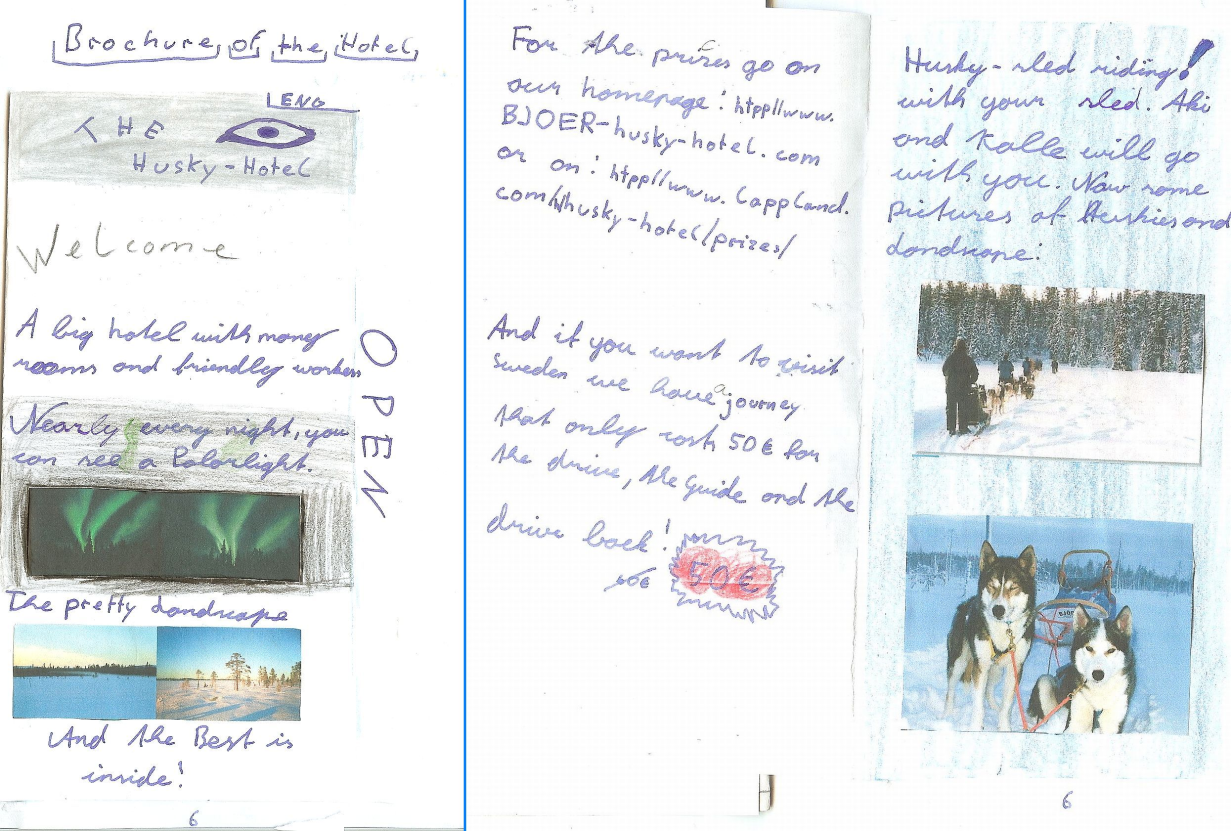 Brochure of the Hotel
ENG
THE
Husky-Hotel
Welcome
A big hotel with many
rooms and friendly workers
OPEN
Nearly every night, you
can see a Polarlight.
The pretty Landscape
And the Best is
inside!
6
For the prizes go on
our homepage: htpp//www.
BJOER-husky-hotel.com
or on: htpp//www.Lappland.
com/husky-hotel/prizes/
And if you want to visit
Sweden we have a journey
that only costs 50€ for
the drive, the Guide and the
drive back!
60€
50€
Husky-sled riding!
with your sled. Aki
and Kalle will go
with you. Now some
pictures of Huskies and
Landscape:
6